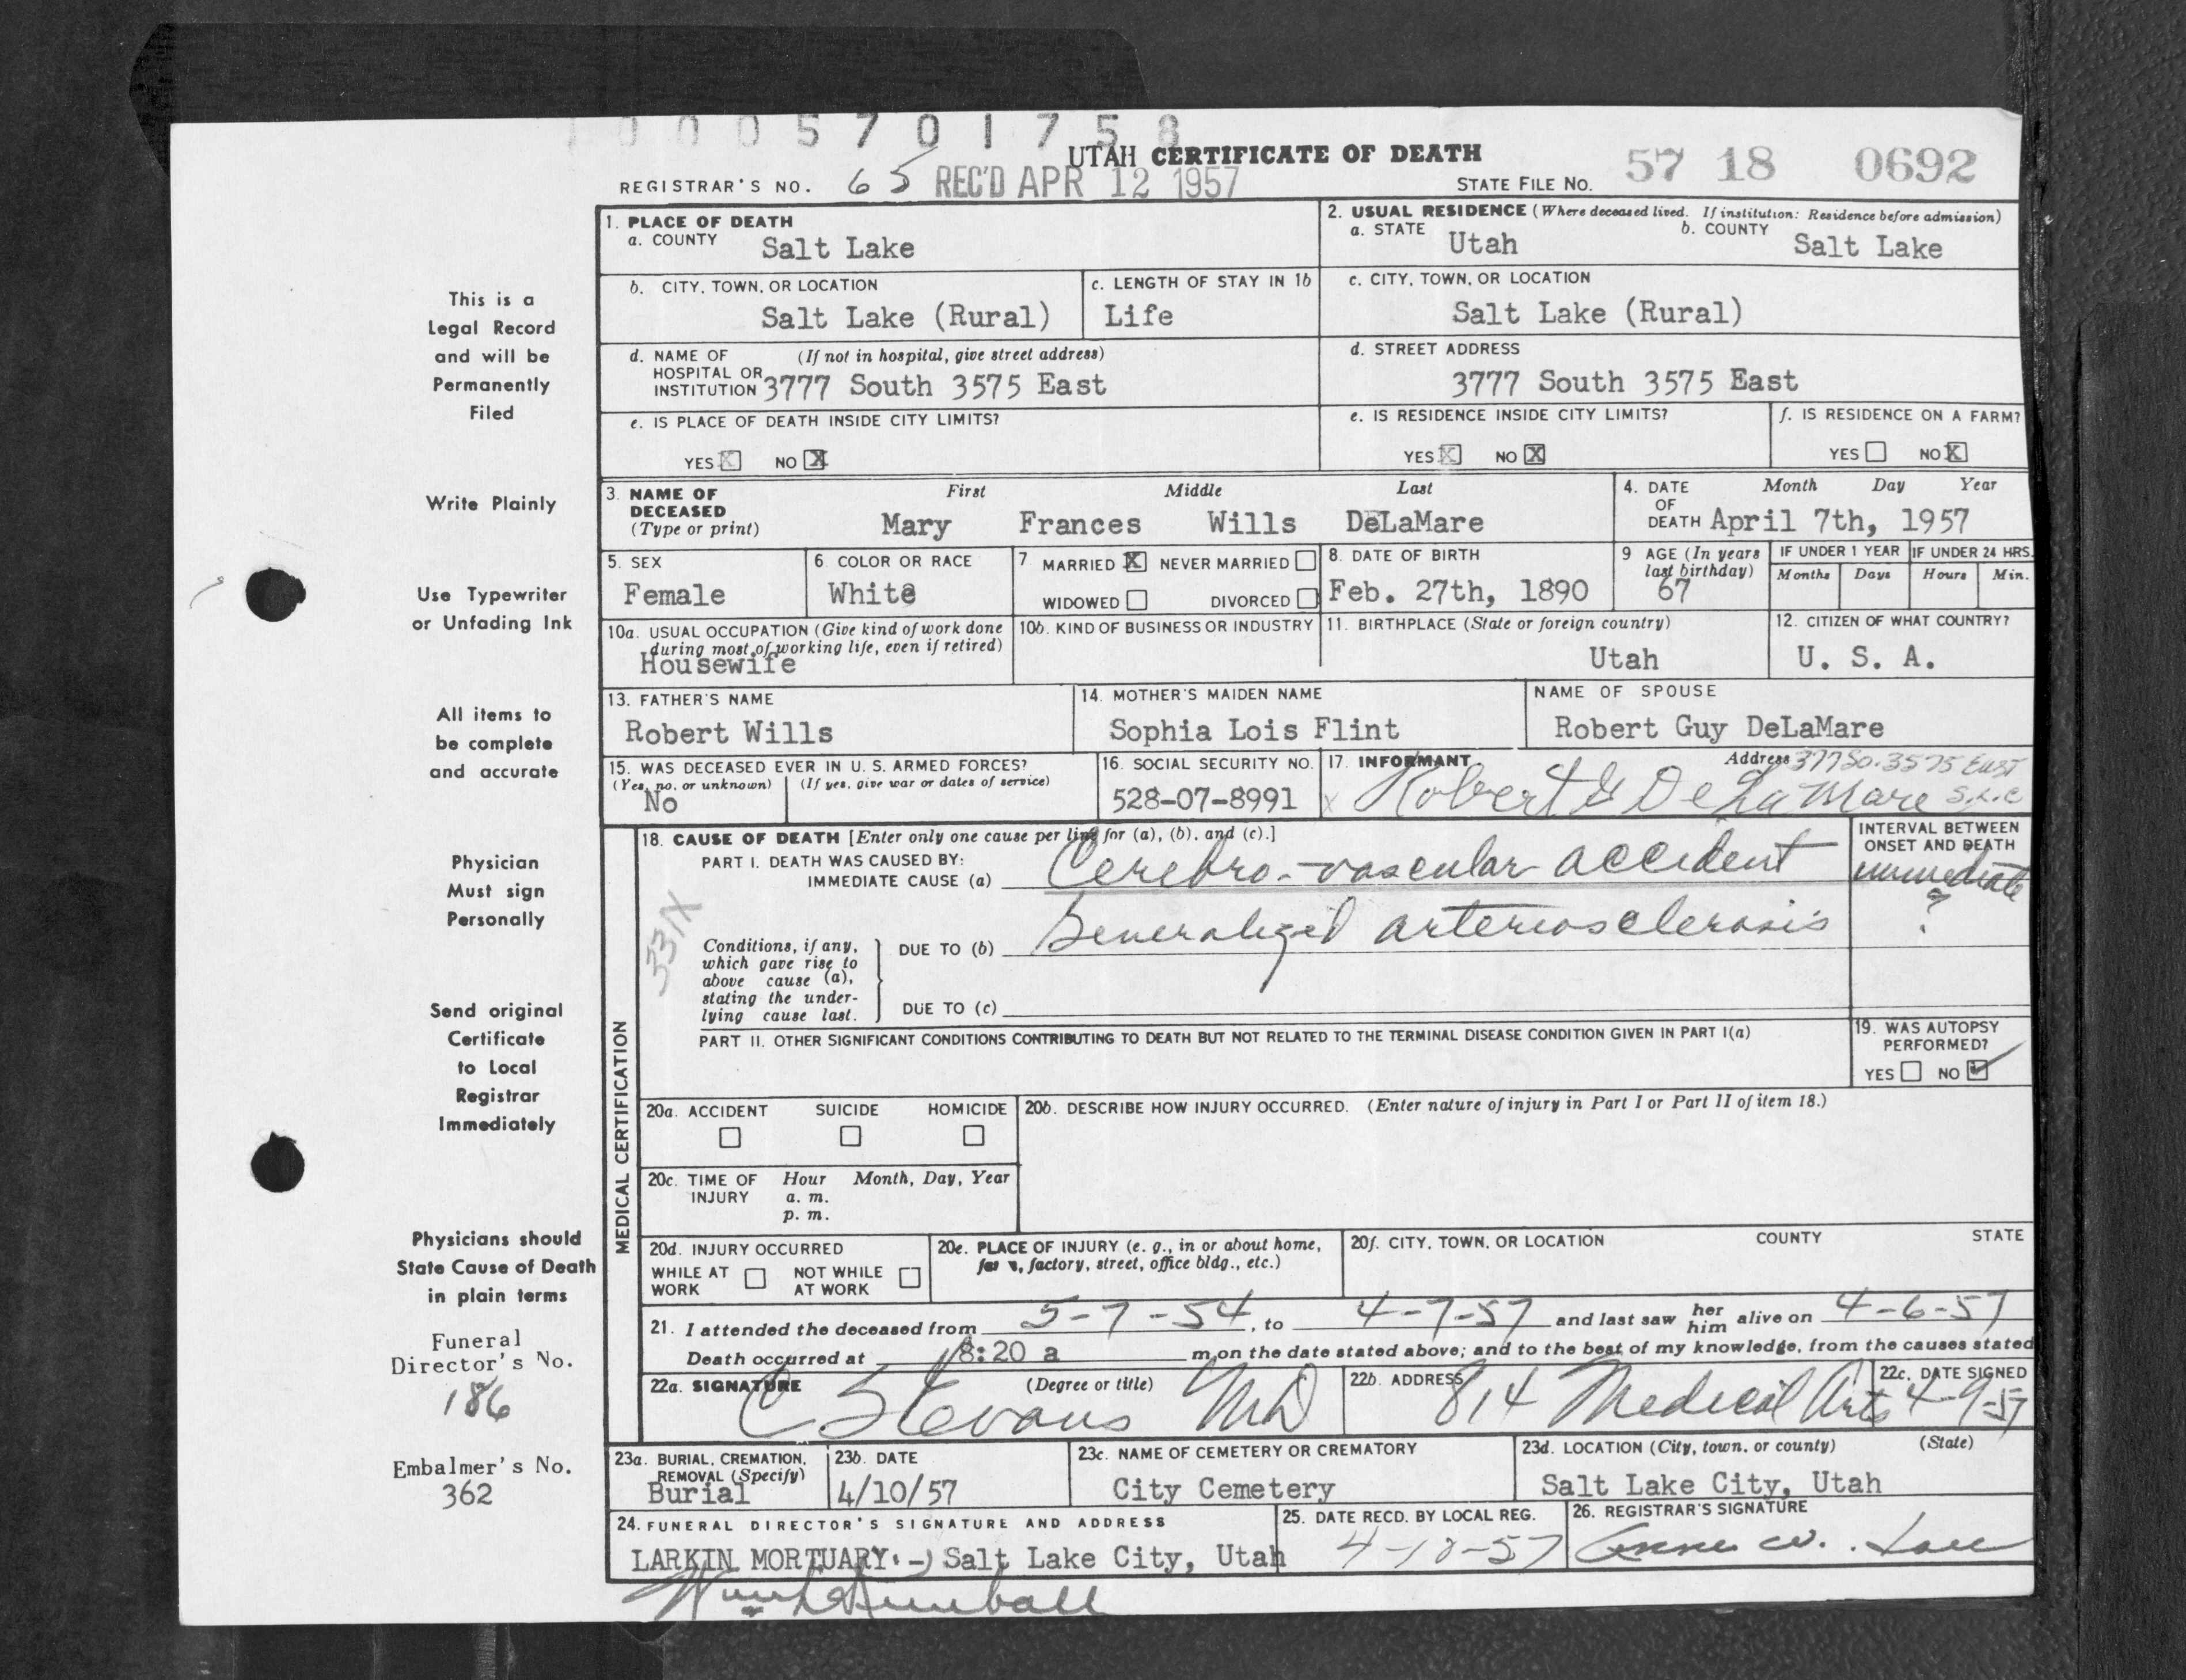 1 0 0 0 5 7 0 1 7 5 8
UTAH CERTIFICATE OF DEATH
REGISTRAR'S NO. 65 REC'D APR 12 1957 STATE FILE NO. 57 18 0692
This is a
Legal Record
and will be
Permanently
Filed
Write Plainly
Use Typewriter
or Unfading Ink
All items to
be complete
and accurate
Physician
Must sign
Personally
Send original
Certificate
to Local
Registrar
Immediately
Physicians should
State Cause of Death
in plain terms
Funeral
Director's No.
186
Embalmer's No.
362
1. PLACE OF DEATH
a. COUNTY Salt Lake
2. USUAL RESIDENCE (Where deceased lived. If institution: Residence before admission)
a. STATE Utah b. COUNTY Salt Lake
b. CITY, TOWN, OR LOCATION
Salt Lake (Rural)
c. LENGTH OF STAY IN 1b
Life
c. CITY, TOWN, OR LOCATION
Salt Lake (Rural)
d. NAME OF (If not in hospital, give street address)
HOSPITAL OR
INSTITUTION 3777 South 3575 East
d. STREET ADDRESS
3777 South 3575 East
e. IS PLACE OF DEATH INSIDE CITY LIMITS?
YES X NO X
e. IS RESIDENCE INSIDE CITY LIMITS?
YES X NO X
f. IS RESIDENCE ON A FARM?
YES NO X
3. NAME OF DECEASED (Type or print)
First Middle Last
Mary Frances Wills DeLaMare
4. DATE OF DEATH Month Day Year
April 7th, 1957
5. SEX
Female
6. COLOR OR RACE
White
7 MARRIED X NEVER MARRIED
WIDOWED DIVORCED
8. DATE OF BIRTH
Feb. 27th, 1890
9 AGE (In years last birthday)
67
IF UNDER 1 YEAR IF UNDER 24 HRS.
Months Days Hours Min.
10a. USUAL OCCUPATION (Give kind of work done
during most of working life, even if retired)
Housewife
10b. KIND OF BUSINESS OR INDUSTRY
11. BIRTHPLACE (State or foreign country)
Utah
12. CITIZEN OF WHAT COUNTRY?
U. S. A.
13. FATHER'S NAME
Robert Wills
14. MOTHER'S MAIDEN NAME
Sophia Lois Flint
NAME OF SPOUSE
Robert Guy DeLaMare
15. WAS DECEASED EVER IN U. S. ARMED FORCES?
(Yes, no, or unknown) (If yes, give war or dates of service)
No
16. SOCIAL SECURITY NO.
528-07-8991
17. INFORMANT Address 377 So. 3575 East
x Robert G DeLaMare S.L.C
MEDICAL CERTIFICATION
331X
18. CAUSE OF DEATH [Enter only one cause per line for (a), (b), and (c).]
PART I. DEATH WAS CAUSED BY:
IMMEDIATE CAUSE (a) Cerebro-vascular accident
INTERVAL BETWEEN
ONSET AND DEATH
immediate
?
Conditions, if any,
which gave rise to
above cause (a),
stating the under-
lying cause last.
DUE TO (b) Generalized arteriosclerosis
DUE TO (c)
PART II. OTHER SIGNIFICANT CONDITIONS CONTRIBUTING TO DEATH BUT NOT RELATED TO THE TERMINAL DISEASE CONDITION GIVEN IN PART I(a)
19. WAS AUTOPSY
PERFORMED?
YES NO
20a. ACCIDENT SUICIDE HOMICIDE
20b. DESCRIBE HOW INJURY OCCURRED. (Enter nature of injury in Part I or Part II of item 18.)
20c. TIME OF INJURY Hour Month, Day, Year
a. m.
p. m.
20d. INJURY OCCURRED
WHILE AT WORK NOT WHILE AT WORK
20e. PLACE OF INJURY (e. g., in or about home,
farm, factory, street, office bldg., etc.)
20f. CITY, TOWN, OR LOCATION COUNTY STATE
21. I attended the deceased from 5-7-54, to 4-7-57 and last saw her him alive on 4-6-57
Death occurred at 8:20 a m, on the date stated above; and to the best of my knowledge, from the causes stated
22a. SIGNATURE (Degree or title)
C Stevans MD
22b. ADDRESS
814 Medical Arts
22c. DATE SIGNED
4-9-57
23a. BURIAL, CREMATION,
REMOVAL (Specify)
Burial
23b. DATE
4/10/57
23c. NAME OF CEMETERY OR CREMATORY
City Cemetery
23d. LOCATION (City, town, or county) (State)
Salt Lake City, Utah
24. FUNERAL DIRECTOR'S SIGNATURE AND ADDRESS
LARKIN MORTUARY - Salt Lake City, Utah
25. DATE RECD. BY LOCAL REG.
4-10-57
26. REGISTRAR'S SIGNATURE
Anne W.